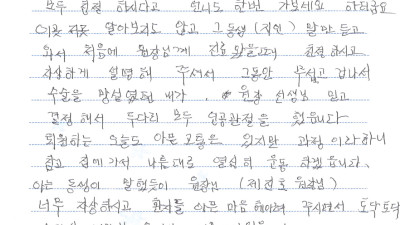 모두 친절 하시다고 언니도 한번 가보세요 하더군요
이곳 저곳 알아보지도 않고 그 동생 (지인) 말만 듣고
와서 처음에 원장님께 진료 받을때 친절 하시고
자상하게 설명해 주셔서 그동안 무섭고 겁나서
수술을 망설였던 내가 원장 선생님 믿고
결정해서 두다리 모두 인공관절을 했습니다
퇴원하는 오늘도 아픈 고통은 있지만 과정 이라하니
참고 집에 가서 나름대로 열심히 운동 하겠습니다.
아는 동생이 말했듯이 원장님 (제진호 원장님)
너무 자상하시고 환자들 아픈 마음 헤아려 주시면서 토닥토닥